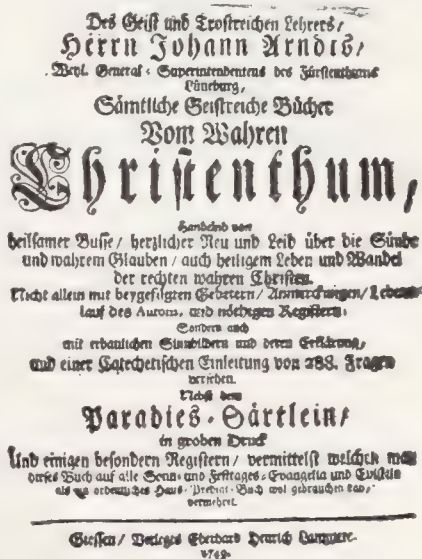 Des Geist und Trostreichen Lehrers/
Herrn Johann Arndts/
Weyl. General-Superintendentens des Fürstenthums
Lüneburg,
Sämtliche Geistreiche Bücher
Vom Wahren
Christenthum,
Handelnd von
heilsamer Busse/ hertzlicher Reu und Leid über die Sünde
und wahrem Glauben/ auch heiligem Leben und Wandel
der rechten wahren Christen.
Nicht allein mit beygefügten Gebetern/ Anmerckungen/ Lebens-
lauf des Autoris, und nöthigen Registern;
Sondern auch
mit erbaulichen Sinnbildern und deren Erklärung,
und einer Catechetischen Einleitung von 288. Fragen
versehen.
Nebst dem
Paradies-Gärtlein/
in groben Druck
Und einigen besondern Registern/ vermittelst welcher man
dieses Buch auf alle Sonn- und Festtages-Evangelia und Episteln
als ein ordentliches Haus-Predigt-Buch wol gebrauchen kan,
vermehret.
Giessen/ Verlegts Eberhard Henrich
1749.